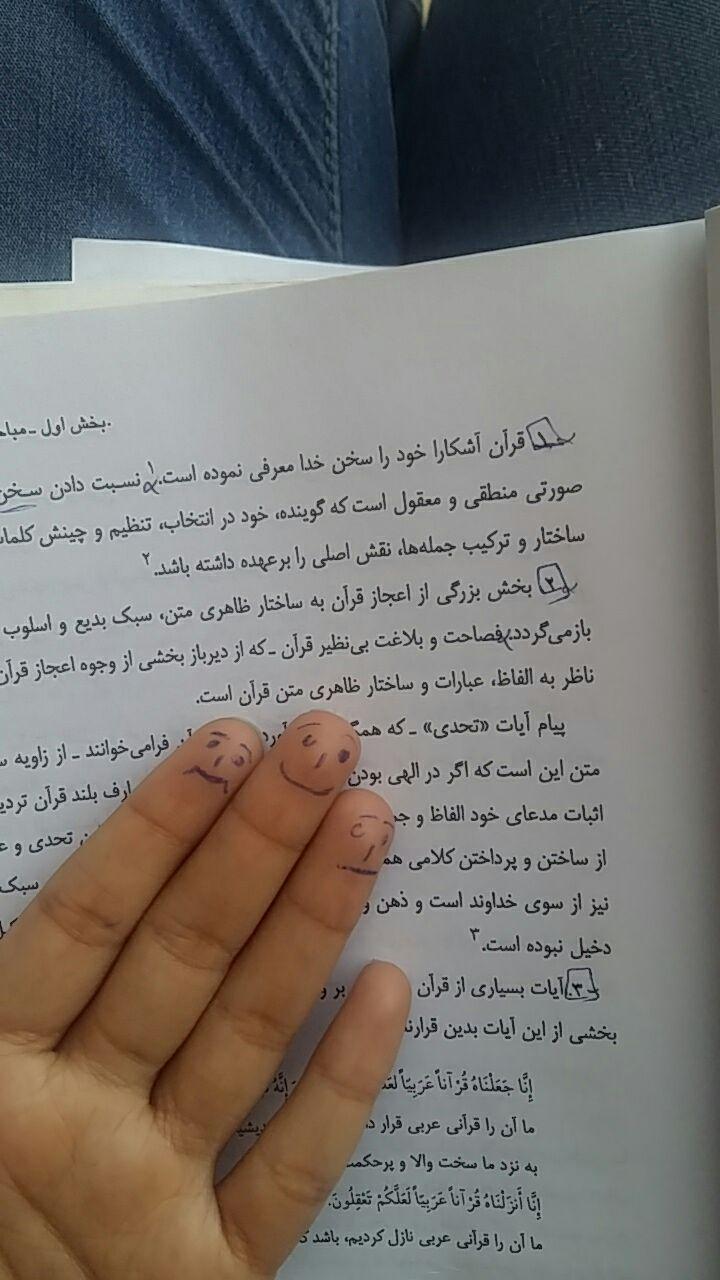 بخش اول ـ
۱. قرآن آشکارا خود را سخن خدا معرفی نموده است.۱ نسبت دادن سخن
صورتی منطقی و معقول است که گوینده، خود در انتخاب، تنظیم و چینش
ساختار و ترکیب جمله‌ها، نقش اصلی را برعهده داشته باشد.۲
۲. بخش بزرگی از اعجاز قرآن به ساختار ظاهری متن، سبک بدیع و اسلوب
بازمی‌گردد. فصاحت و بلاغت بی‌نظیر قرآن ـ که از دیرباز بخشی از وجوه اعجاز قرآن
ناظر به الفاظ، عبارات و ساختار ظاهری متن قرآن است.
پیام آیات «تحدی» ـ که فرامی‌خوانند ـ از زاویه
متن این است که اگر در الهی بودن بلند قرآن
اثبات مدعای خود الفاظ و تحدی و
از ساختن و پرداختن کلامی سبک
نیز از سوی خداوند است و ذهن و
دخیل نبوده است.۳
۳. آیات بسیاری از قرآن بر
بخشی از این آیات بدین
إِنَّا جَعَلْنَاهُ قُرْآناً عَرَبِيّاً
ما آن را قرآنی عربی قرار
به نزد ما سخت والا و
إِنَّا أَنزَلْنَاهُ قُرْآناً عَرَبِيّاً لَعَلَّكُمْ تَعْقِلُونَ.
ما آن را قرآنی عربی نازل کردیم، باشد